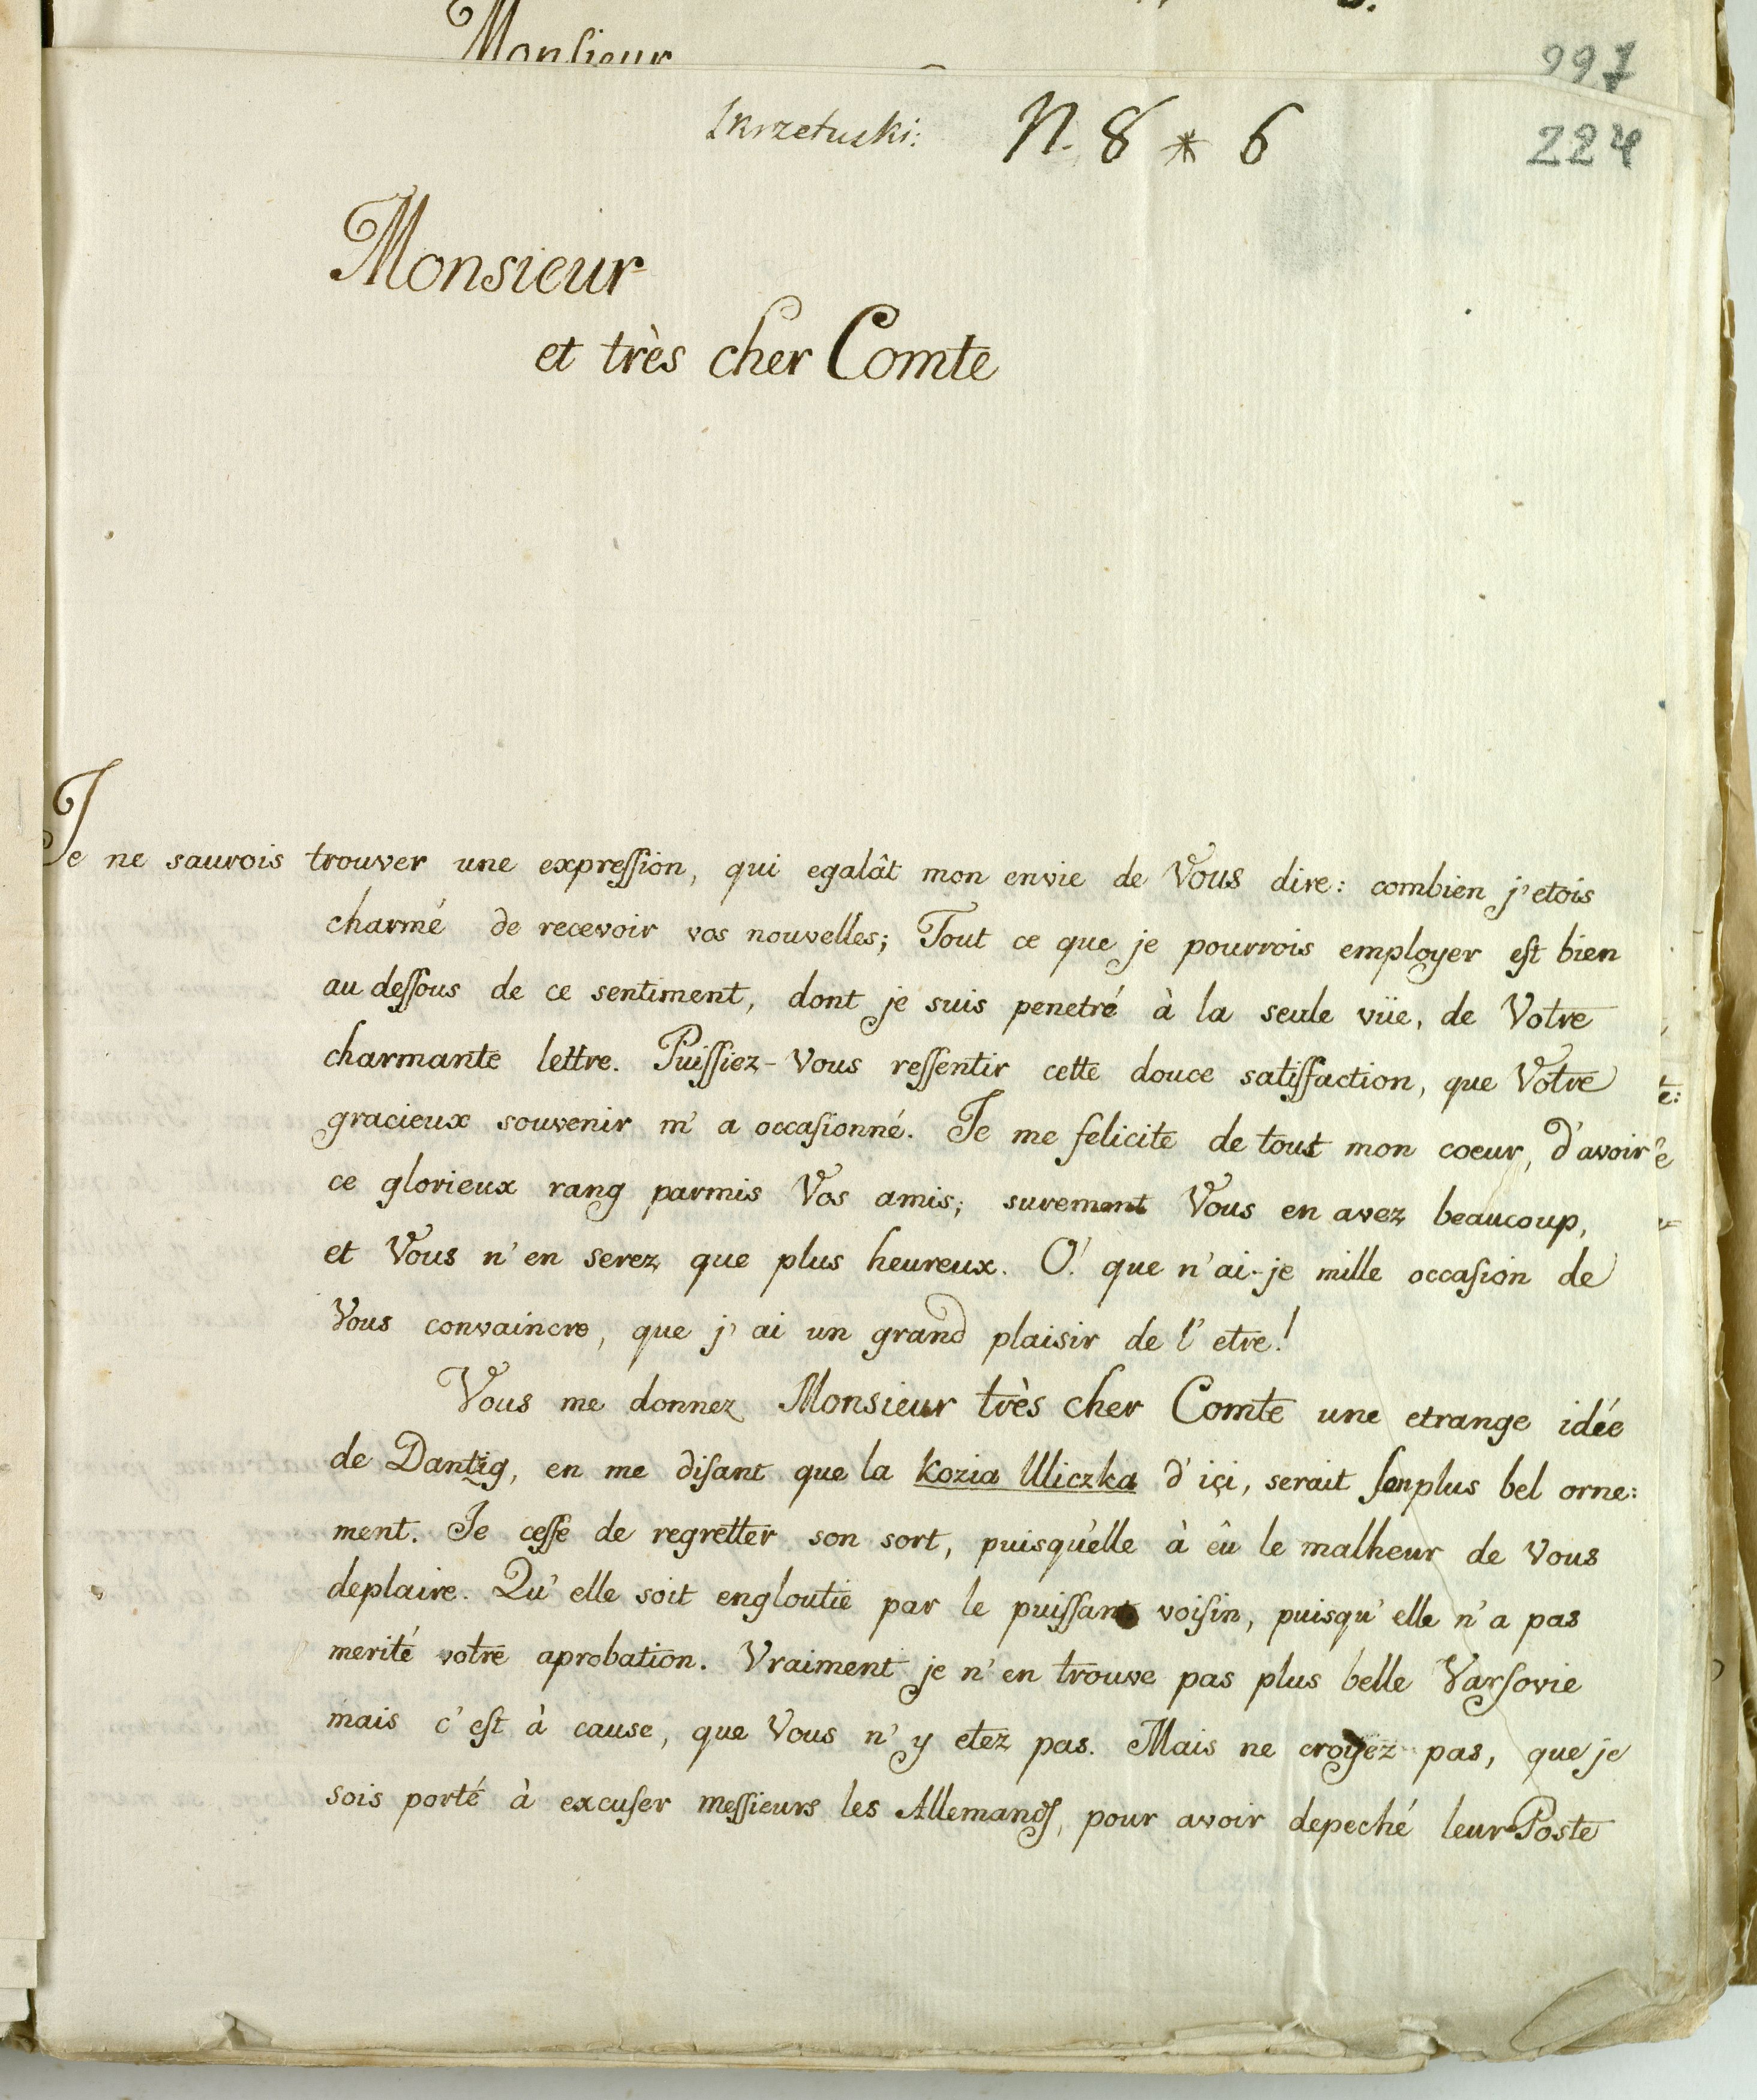 Monsieur
997
Skrzetuski: N. 8 * 6
224
Monsieur
et très cher Comte
Je ne saurois trouver une expression, qui egalât mon envie de Vous dire: combien j'etois
charmé de recevoir vos nouvelles; Tout ce que je pourrois employer est bien
au dessous de ce sentiment, dont je suis penetré à la seule vüe, de Votre
charmante lettre. Puissiez-Vous ressentir cette douce satisfaction, que Votre
gracieux souvenir m'a occasionné. Je me felicite de tout mon coeur, d'avoir
ce glorieux rang parmis Vos amis; surement Vous en avez beaucoup,
et Vous n'en serez que plus heureux. O! que n'ai-je mille occasion de
Vous convaincre, que j'ai un grand plaisir de l'etre!
Vous me donnez Monsieur très cher Comte une etrange idée
de Dantzig, en me disant que la kozia Uliczka d'içi, serait son plus bel orne:
ment. Je cesse de regretter son sort, puisqu'elle à êu le malheur de Vous
deplaire. Qu'elle soit engloutie par le puissant voisin, puisqu'elle n'a pas
merité votre aprobation. Vraiment je n'en trouve pas plus belle Varsovie
mais c'est à cause, que Vous n'y etez pas. Mais ne croyez pas, que je
sois porté à excuser messieurs les Allemands, pour avoir depeché leur Poste